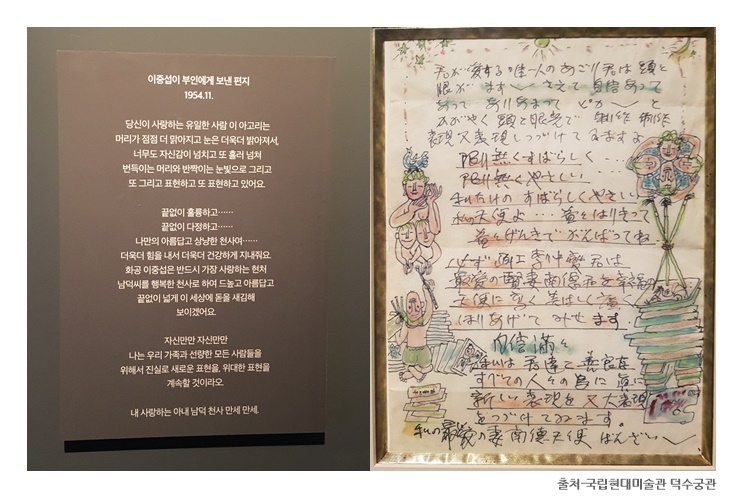 이중섭이 부인에게 보낸 편지
1954.11.
당신이 사랑하는 유일한 사람 이 아고리는
머리가 점점 더 맑아지고 눈은 더욱더 밝아져서,
너무도 자신감이 넘치고 또 흘러 넘쳐
번득이는 머리와 반짝이는 눈빛으로 그리고
또 그리고 표현하고 또 표현하고 있어요.
끝없이 훌륭하고……
끝없이 다정하고……
나만의 아름답고 상냥한 천사여……
더욱더 힘을 내서 더욱더 건강하게 지내줘요.
화공 이중섭은 반드시 가장 사랑하는 현처
남덕씨를 행복한 천사로 하여 드높고 아름답고
끝없이 넓게 이 세상에 돋을 새김해
보이겠어요.
자신만만 자신만만
나는 우리 가족과 선량한 모든 사람들을
위해서 진실로 새로운 표현을, 위대한 표현을
계속할 것이라오.
내 사랑하는 아내 남덕 천사 만세 만세.
君が愛する唯一人のあごり君は頭と
眼が ます〱 さえて 自信あって
あって ありあまって ピカ〱と
かがやく 頭と眼光で 制作 制作
表現又表現しつづけてゐますよ
限り無くすばらしく…
限り無くやさしい…
私だけの すばらしくやさしい
私の天使よ… 益々はりきって
益々げんきでがんばってね
必ず 画工李仲燮君は
最愛の賢妻南德君を幸福の
天使に 高く 美ばしく 広く
ほりあげて みせ ます.
自信満々
私は 君達と 善良な
すべての人々の爲に 眞に
新しい表現を 又 大表現
をつづけてゐます。
私の最愛の妻南德天使 ばんざい〱
출처-국립현대미술관 덕수궁관